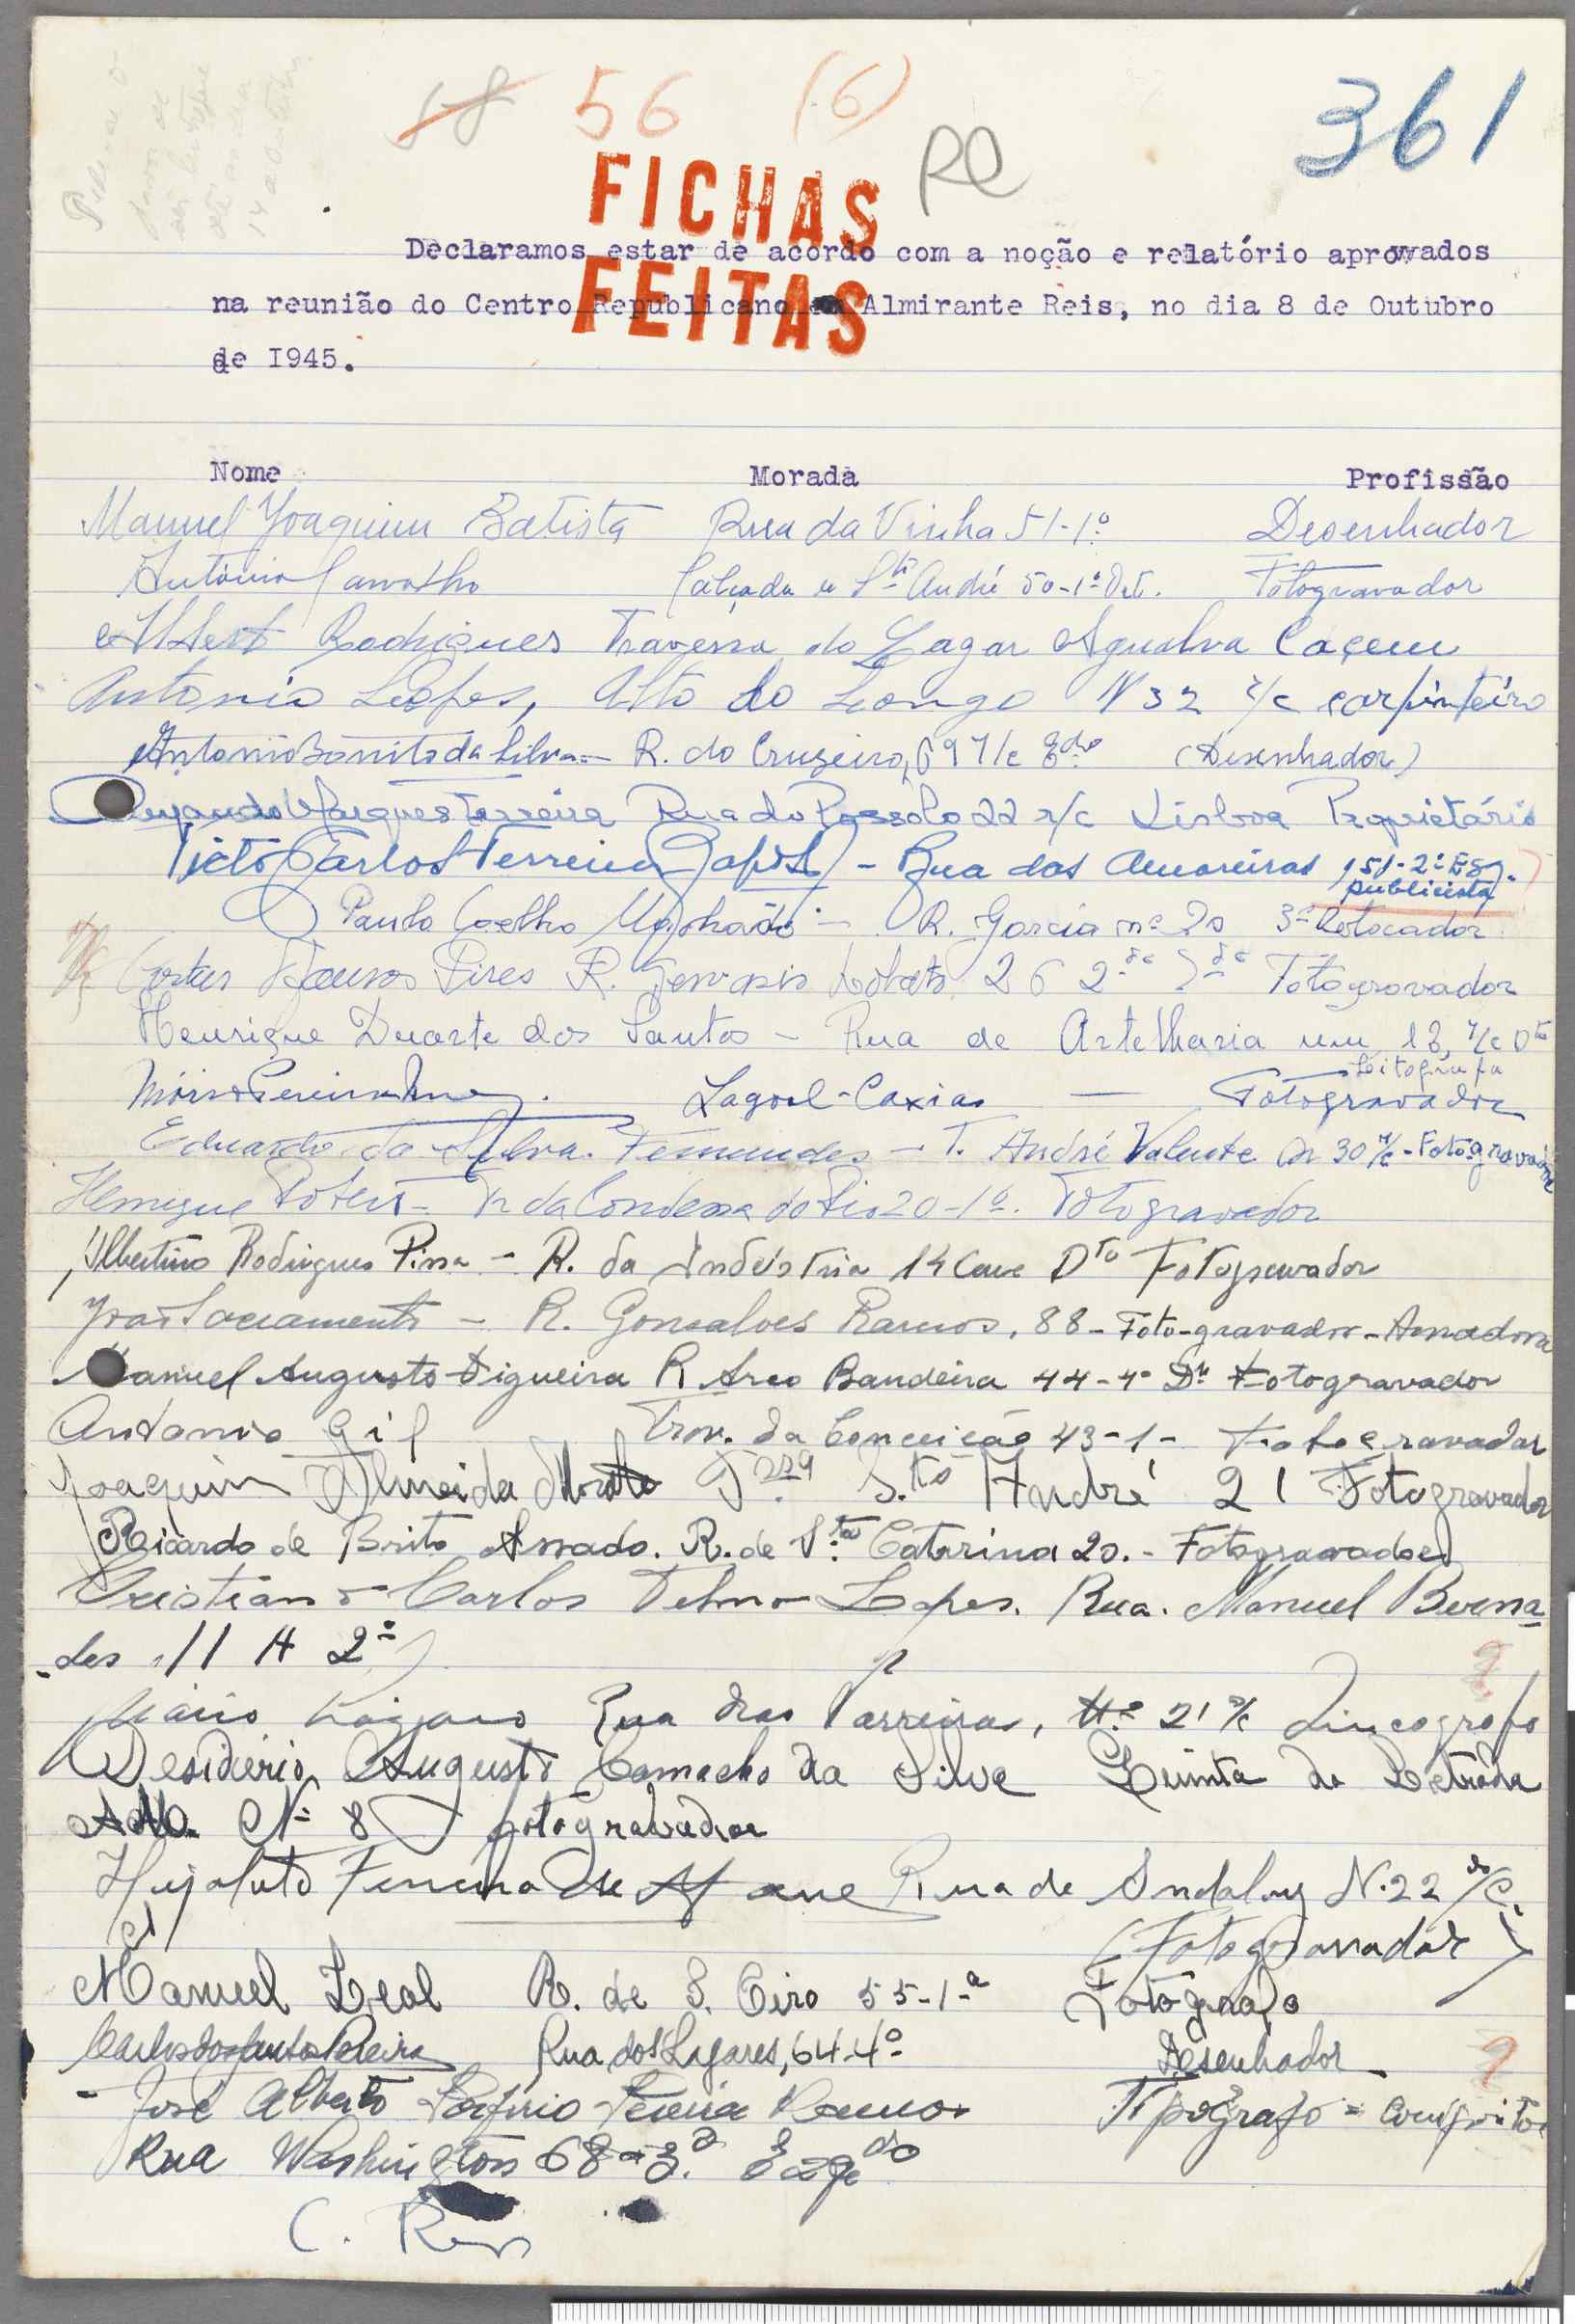 58 56 (6) 361
RC
FICHAS
FEITAS
Declaramos estar de acordo com a noção e relatório aprovados
na reunião do Centro Republicano Almirante Reis, no dia 8 de Outubro
de I945.
Nome Morada Profissão
Manuel Joaquim Batista Rua da Vinha 51-1º Desenhador
António Carvalho Calçada de Stº André 50-1º Dt. Fotogravador
Albert Rodrigues Travessa do Lagar Agualva Caçem
Antonio Lopes, Alto do Longo Nº 32 r/c carpinteiro
Antonio Bonito da Silva = R. do Cruzeiro, 69 r/c Eqdo (Desenhador)
Marques Ferreira Rua do Possolo 22 r/c Lisboa Proprietário
Carlos Ferreira - Rua das Amoreiras, 151-2º Esq.
publicista
Paulo Coelho Machado - R. Garcia nº 20 3º Retocador
Pires R. Gervasio Lobato 26 2º Fotogravador
Henrique Duarte dos Santos - Rua de Artelharia um 13, r/c Dto
Litografo
Lagoal-Caxias — Fotogravador
Eduardo da Silva Fernandes - T. André Valente 30 r/c - Fotogravador
Henrique - Tr da Condessa do Rio 20-1º. Fotogravador
Albertino Rodrigues Pina - R. da Indústria 14 Cave Dto Fotogravador
João Sacramento - R. Gonsalves Ramos, 88 - Foto-gravador - Amadora
Manuel Augusto Figueira R Arco Bandeira 44-4º Dto Fotogravador
Antonio Gil Trav. da Conceição 43-1- Fotogravador
Joaquim Almeida Tvª Stº André 21 Fotogravador
Ricardo de Brito Amado. R. de Stª Catarina 20. - Fotogravador
Cristiano Carlos Telmo Lopes. Rua. Manuel Berna
-des 11 A 2º
Mário Rua das Parreiras, Nº 21 r/c Zincografo
Desidério Augusto Camacho da Silva Quinta da
Nº 8 fotogravador
Ferreira Rua de Andaluz N. 22 r/c.
(Fotogravador)
Manuel Leal R. de S. Ciro 55-1-º Fotógrafo
Carlos dos Santos Pereira Rua dos Lagares, 64-4º Desenhador
José Alberto Porfirio Pereira Ramos Tipógrafo = compositor
Rua Washington 68-3.º Esqdo